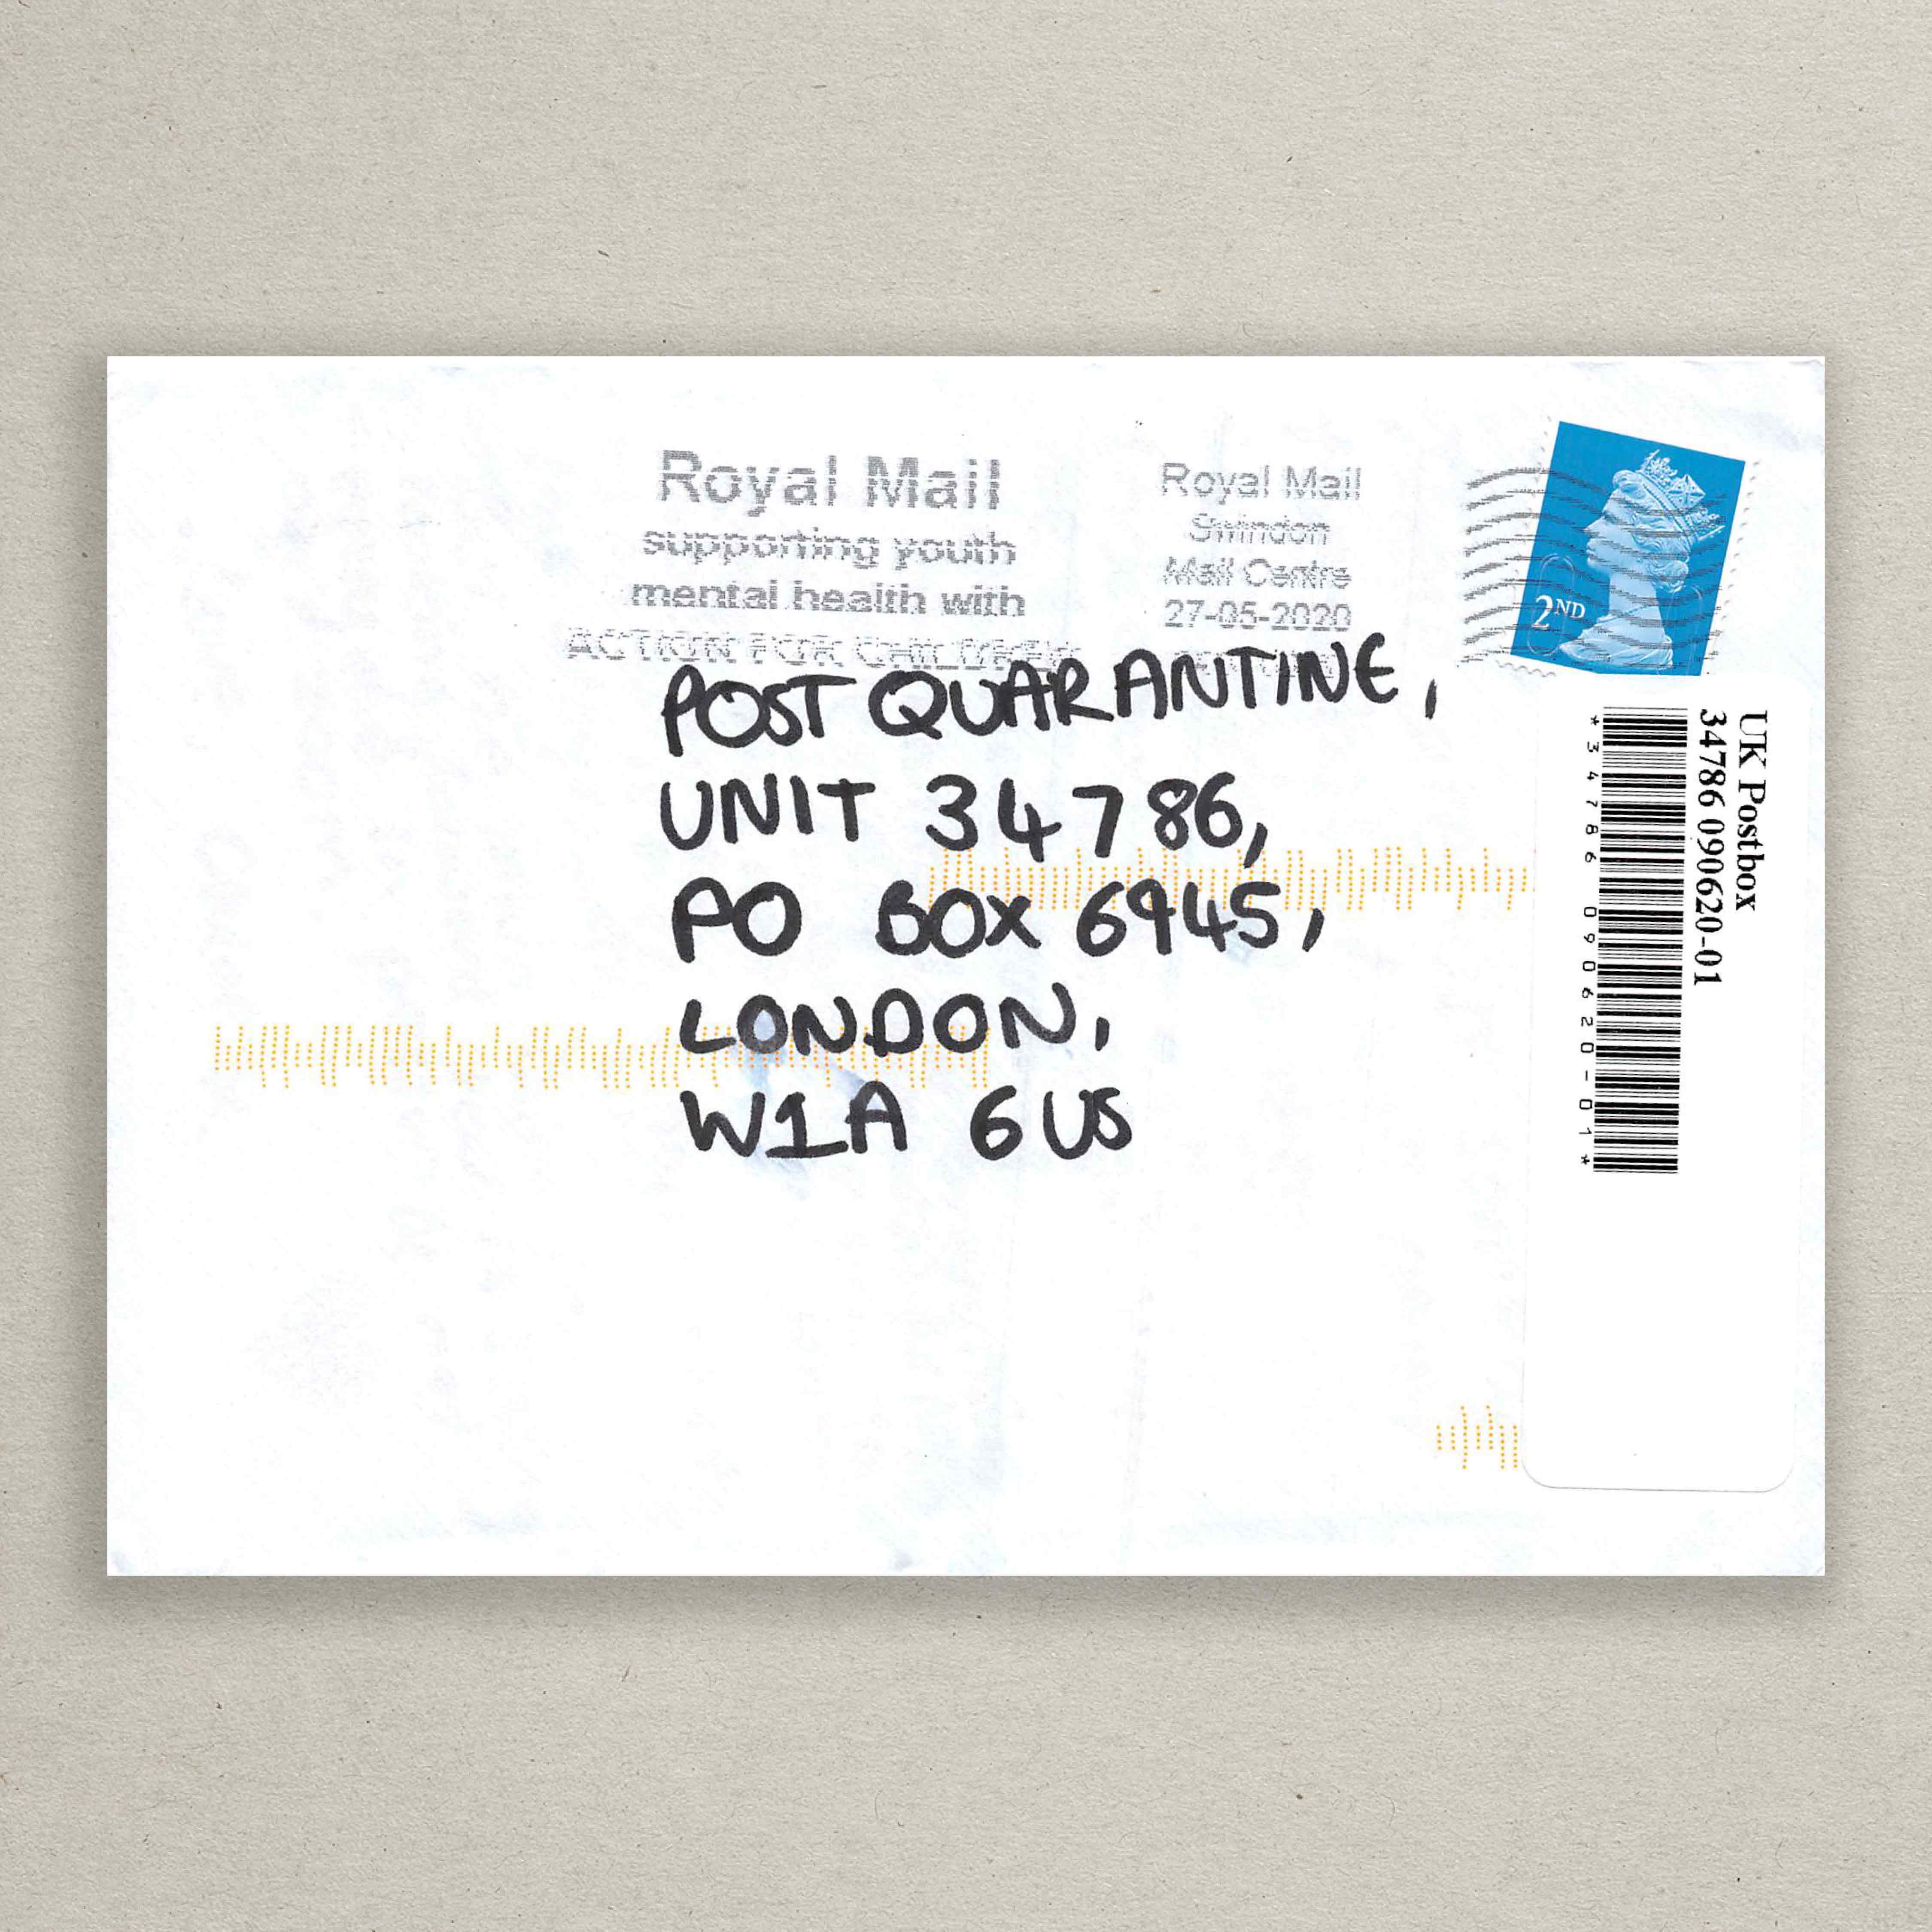 Royal Mail
supporting youth
mental health with
ACTION FOR CHILDREN
Royal Mail
Swindon
Mail Centre
27-05-2020
2ND
POST QUARANTINE,
UNIT 34786,
PO BOX 6945,
LONDON,
W1A 6US
UK Postbox
34786 090620-01
*34786 090620-01*